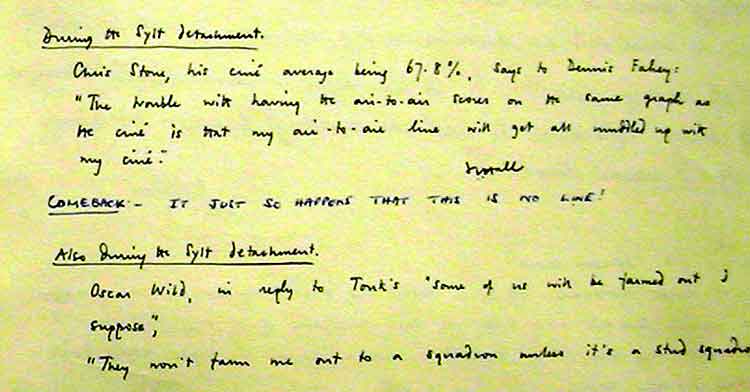 During the Sylt detachment.
Chris Stone, his ciné average being 67.8%, says to Dennis Fahey:
"The trouble with having the air-to-air scores on the same graph as
the ciné is that my air-to-air line will get all muddled up with
my ciné."
COMEBACK - IT JUST SO HAPPENS THAT THIS IS NO LINE!
Also During the Sylt detachment.
Oscar Wild, in reply to Tonk's "some of us will be farmed out I
suppose",
"They won't farm me out to a squadron unless it's a stud squadron